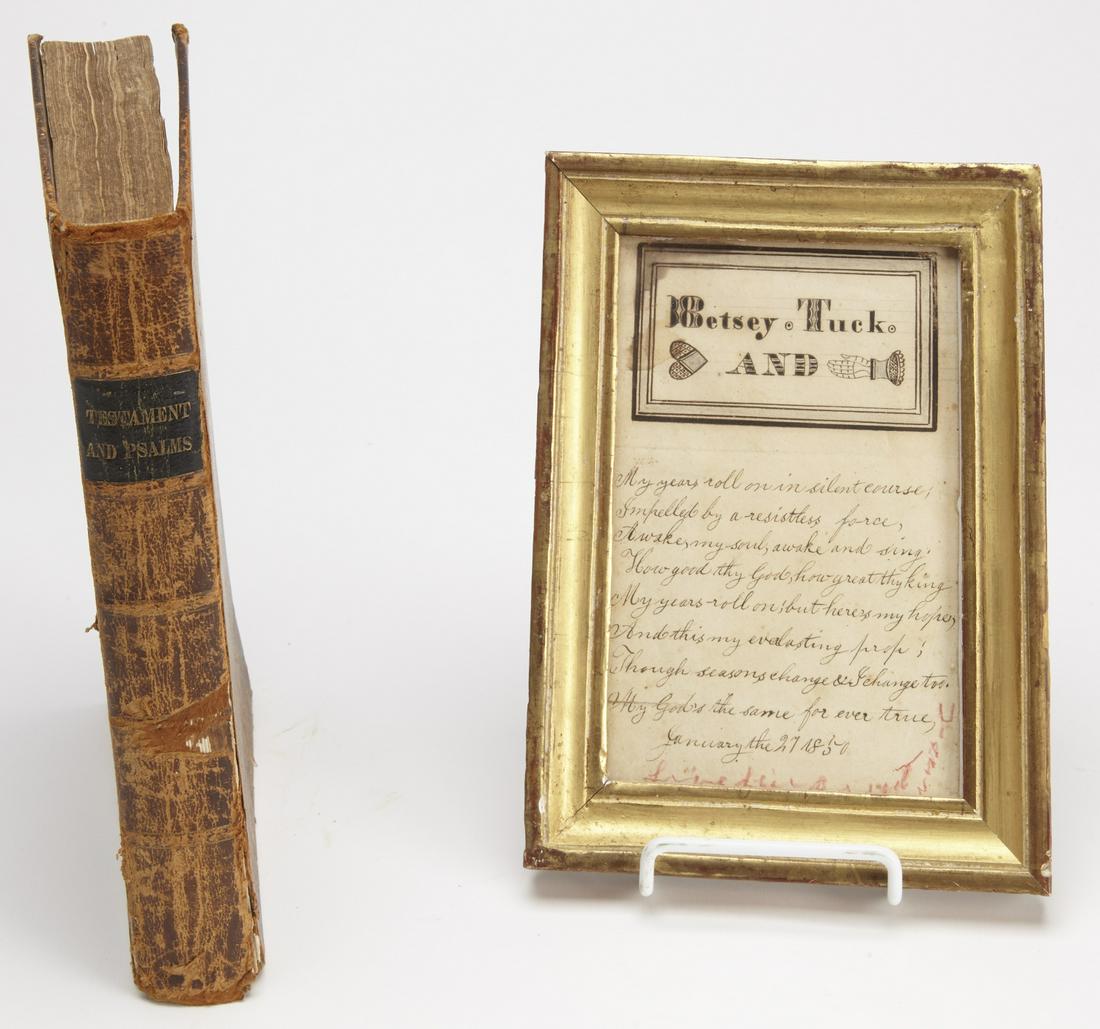 TESTAMENT
AND PSALMS
Betsey. Tuck.
AND
My years roll on in silent course;
Impelled by a resistless force,
Awake, my soul, awake and sing;
How good thy God, how great thy king
My years roll on; but here's my hope,
And this my everlasting prop;
Though seasons change & I change too.
My God's the same for ever true,
January the 27 1850